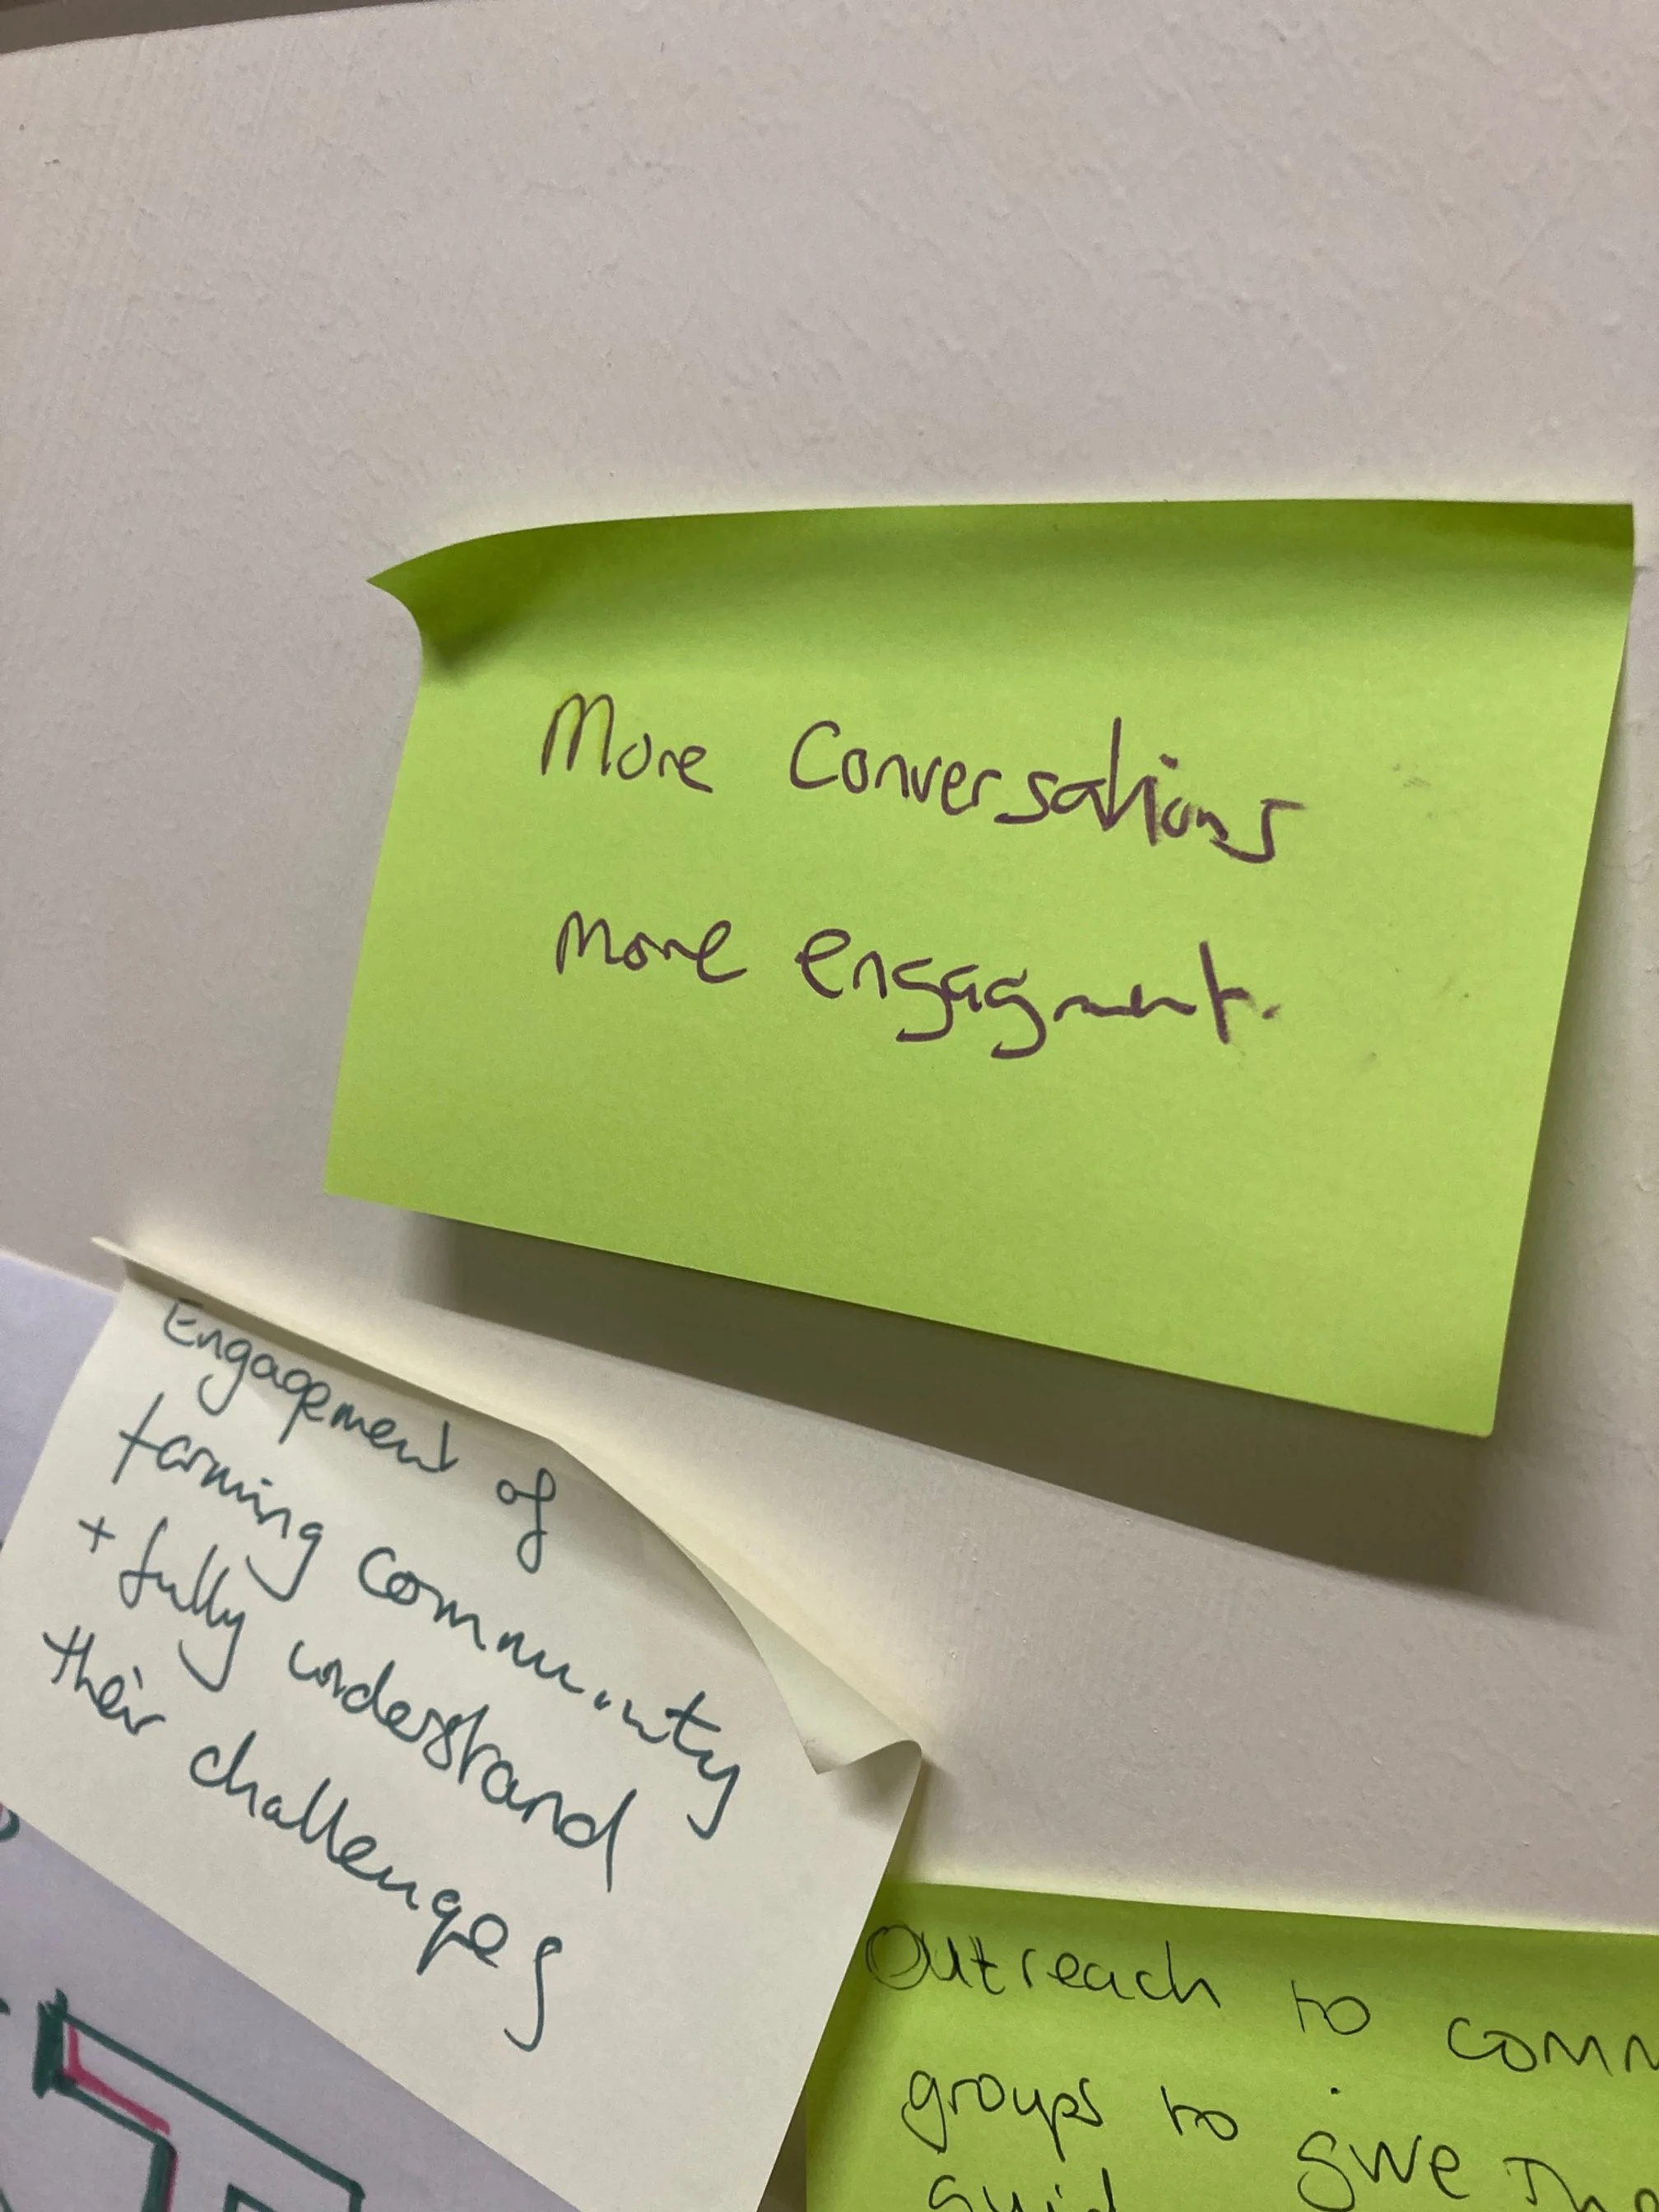 More Conversations
more engagment.
Engagement of
farming community
+ fully understand
their challenges
Outreach to comm
groups to give